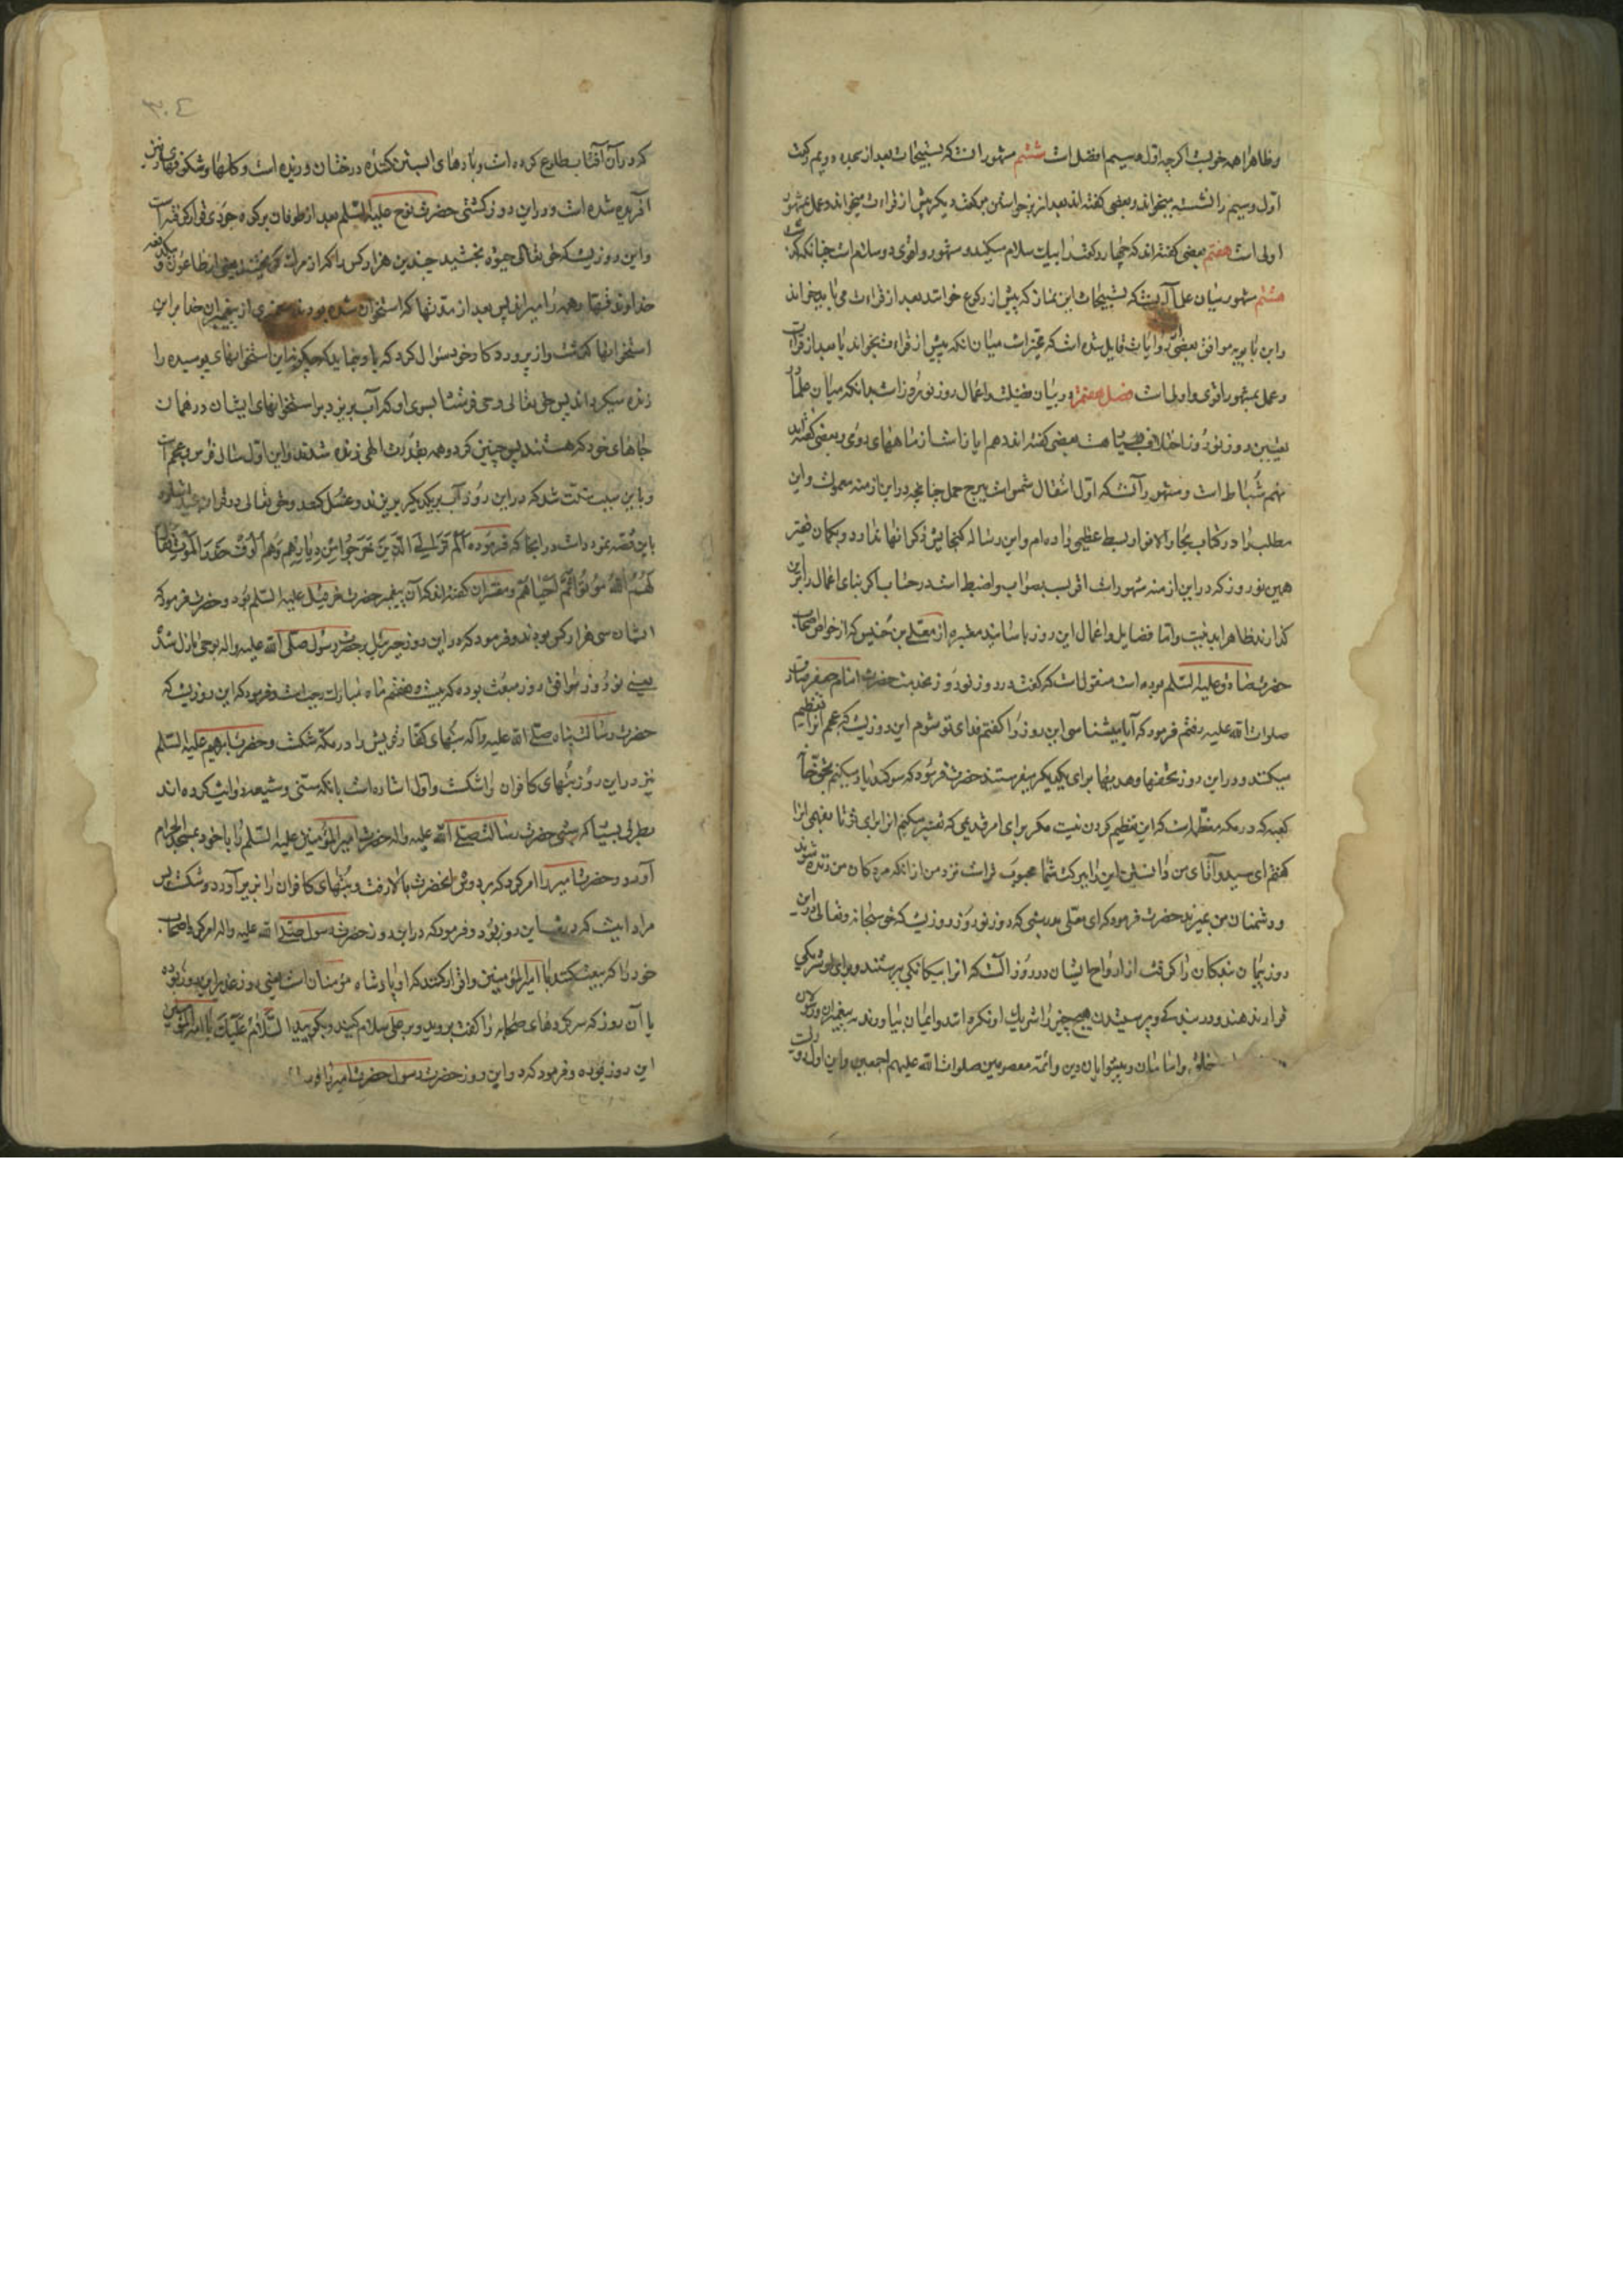 و ظاهرا همه خوبست اگرچه اول و سیم افضل است ششم مشهور آنست که تسبیحات بعد از سجده دویم رکعت
اول و سیم را نشسته میخواند و بعضی گفته‌اند بعد از برخواستن میگفت و دیگر پیش از قراءت میخواند و عمل بمشهور
اولی است هفتم بعضی گفته‌اند که چهار رکعت را بیک سلام میکند و مشهور و اقوی دو سلام است چنانکه گذشت
هشتم مشهور میان علما آنست که تسبیحات این نماز که پیش از رکوع خوانند بعد از قراءت می باید خواند
و ابن بابویه موافق بعضی روایات قایل شده است که مخیر است میان آنکه پیش از قراءت بخواند یا بعد از قراءت
و عمل بمشهور اقوی و اولی است فصل هفتم در بیان فضیلت و اعمال روز نوروز است بدانکه میان علما
تعیین روز نوروز اختلاف بسیار هست بعضی گفته‌اند دهم ایار است از ماههای رومی و بعضی گفته‌اند
نهم شباط است و مشهور آنست که اول انتقال شمس است ببرج حمل چنانچه در این ازمنه معمولست و این
مطلب را در کتاب بحار الانوار بسط عظیمی داده‌ام و این رساله گنجایش ذکر آنها ندارد و بگمان فقیر
همین نوروز که در این ازمنه مشهور است اقرب بصواب و اضبط است در حساب اگر بنای اعمال را بر این
گذارند ظاهرا بد نیست و اما فضایل و اعمال این روز باسانید معتبره از معلی بن خنیس که از خواص اصحاب
حضرت صادق علیه السلم بوده است منقولست که گفت در روز نوروز بخدمت حضرت امام جعفر صادق
صلوات الله علیه رفتم فرمود که آیا میشناسی این روز را گفتم فدای تو شوم این روزیست که عجم آنرا تعظیم
میکنند و در این روز تحفها و هدیها برای یکدیگر میفرستند حضرت فرمود که سوگند یاد میکنم بحق خانه
کعبه که در مکه معظمه است که این تعظیم کردن نیست مگر برای امر قدیمی که تفسیر میکنم آنرا برای تو تا بفهمی آنرا
گفتم ای سید و آقای من دانستن این را ببرکت شما محبوب‌تر است نزد من از آنکه مردگان من زنده شوند
و دشمنان من بمیرند حضرت فرمود که ای معلی بدرستی که روز نوروز روزیست که حق سبحانه و تعالی در این
روز پیمان بندگان را گرفت از ارواح ایشان در روز الست که او را بیگانگی بپرستند و برای او شریکی
قرار ندهند و در بندگی و پرستیدن هیچ چیز را شریک او نکردانند و ایمان بیاورند به پیغمبران و رسولان
و امامان و پیشوایان دین و ائمه معصومین صلوات الله علیهم اجمعین و این اول روزیست
که در آن آفتاب طلوع کرده است و بادهای آبستن کننده درختان وزیده است و گلها و شکوفهای زمین
آفریده شده است و در این روز کشتی حضرت نوح علیه السلم بعد از طوفان بر کوه جودی قرار گرفته است
و این روزیست که حق تعالی حیوة بخشید چندین هزار کس را که از مرگ گریختند یعنی از طاعون و یکدفعه
خداوند قهار همه را میرانید پس بعد از مدتها که استخوان شده بودند پیغمبری از پیغمبران خدا بر این
استخوانها گذشت و از پروردگار خود سؤال کرد که باو بنماید که چگونه این استخوانهای پوسیده را
زنده میگرداند پس حق تعالی وحی فرستاد بسوی او که آب بریزد بر استخوانهای ایشان در همان
جاهای خود که هستند پس چنین کرد و همه بقدرت الهی زنده شدند و این اول سال فرس و عجم است
و باین سبب سنت شد که در این روز آب بر یکدیگر بریزند و غسل کنند و حق تعالی در قرآن مجید اشاره
باین قصه نموده است در آنجا که فرموده الم تر الی الذین خرجوا من دیارهم و هم الوف حذر الموت فقال
لهم الله موتوا ثم احیاهم و مفسران گفته‌اند که آن پیغمبر حضرت حزقیل علیه السلم بود و حضرت فرمود که
ایشان سی هزار کس بودند و فرمود که در این روز جبرئیل بر حضرت رسول صلی الله علیه و اله بوحی نازل شد
یعنی نوروز موافق روز مبعث بوده که بیست و هفتم ماه مبارک رجبست و فرمود که این روزیست که
حضرت رسالت پناه صلی الله علیه و آله بتهای کفار قریش را در مکه شکست و حضرت ابرهیم علیه السلم
نیز در این روز بتهای کافران را شکست و اول اشاره است بآنکه سنی و شیعه روایت کرده‌اند
بطرق بسیار که شبی حضرت رسالت صلی الله علیه و اله حضرت امیر المؤمنین علیه السلم را با خود بمسجد الحرام
آورد و حضرت امیر را امر کرد که بر دوش آنحضرت بالا رفت و بتهای کافران را بزیر آورد و شکست پس
مراد اینست که در این روز بود و فرمود که در این روز حضرت رسول صلی الله علیه و اله امر کرد باصحاب
خود را که بیعت کنند با امیر المؤمنین و اقرار کنند که او پادشاه مؤمنان است یعنی روز غدیر این روز بوده
یا آن روز که سرکرده‌های صحابه را گفت بروید و بر علی سلام کنید و بگویید السلام علیک یا امیر المؤمنین
این روز بوده و فرمود که در این روز حضرت رسول حضرت امیر را